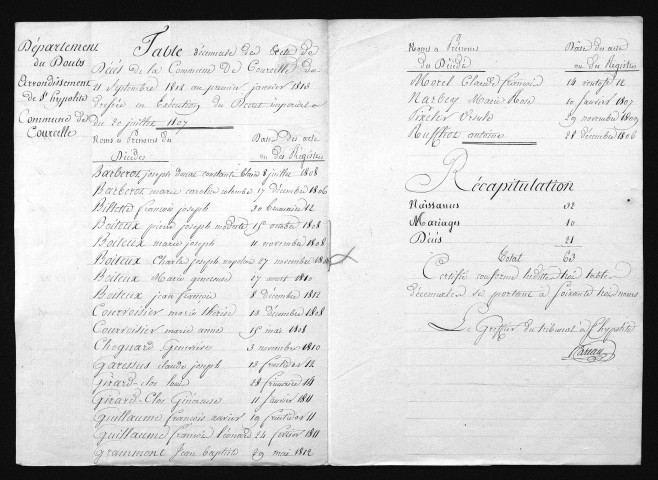 Département
du Doubs
Arrondissement
de St hypolite
Commune de
Courcelle
Table décennale des Acte de
Décès de la Commune de Courcelle du
11 Septembre 1802 au premier janvier 1813
Dressée en Exécution du Décret impérial
du 20 juillet 1807
Noms & Prénoms du Date des acte
Décédés ou des Registres
Barberot joseph constant 8 juillet 1808
Barberot marie caroline colombe 17 décembre 1806
Billotte françois joseph 30 brumaire 12
Boiteux pierre joseph modeste 1er octobre 1808
Boiteux marie joseph 11 novembre 1808
Boiteux Charle joseph napoleon 27 novembre
Boiteux Marie genereuse 17 aoust 1810
Boiteux jean firmin 8 décembre 1812
Courvoisier marie thérèse 13 décembre 1808
Courvoisier marie anne 1er mai 1808
Chognard Genevieve 3 novembre 1810
Garessus claude joseph 13 fructidor 12
Girard-clos loui 28 frimaire 14
Girard-Clos Génereuse 11 janvier 1811
Guillaume françois xavier 19 fructidor 11
Guillaume françois léonard 24 février 1811
Grammont Jean baptiste 29 mai 1812
Noms & Prénoms Date des acte
du Décédé ou des Registres
Morel Claude firmin 14 ventose 12
Narbey Marie Rose 10 janvier 1807
Ursule 29 novembre 1809
Ruffiot antoine 21 décembre 1806
Récapitulation
Naissances 32
Mariages 10
Décès 21
Total 63
Certifié conforme lesdites trois tables
décennales se portant à soixante trois noms
Le Greffier du tribunal à St hypolite